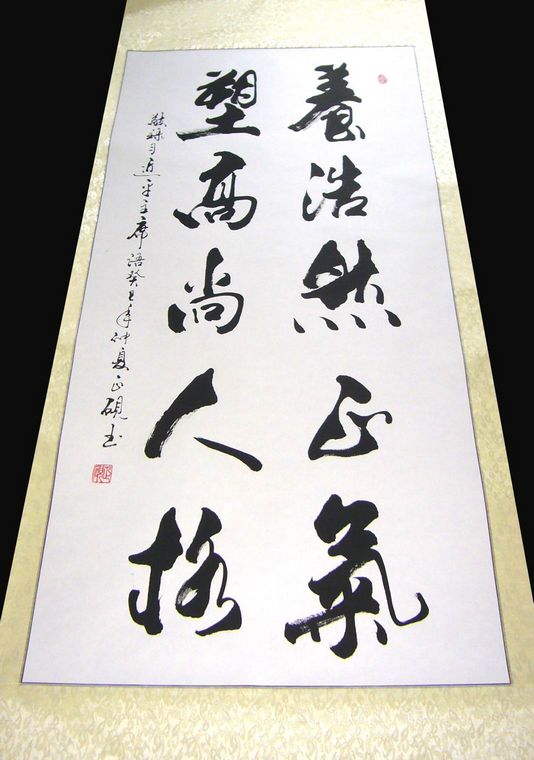 養浩然正氣
塑高尚人格
敬錄习近平主席語癸巳年仲夏正硯書